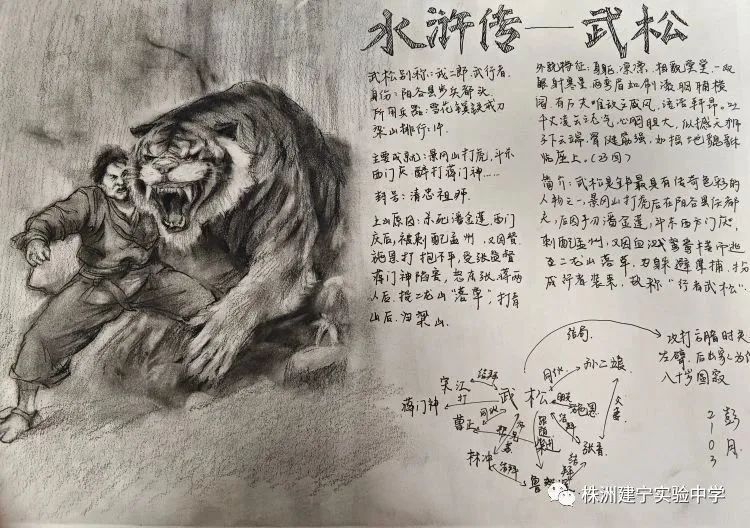 水浒传——武松
武松别称:武二郎.武行者.
身份:阳谷县步兵都头
所用兵器:雪花镔铁戒刀
梁山排行:14
主要成就:景冈山打虎,斗杀
西门庆 醉打蒋门神……
封号:清忠祖师.
上山原因:杀死潘金莲,西门
庆后,被刺配孟州.又因替
施恩打抱不平,受张
蒋门神陷害,怒杀张.蒋两
人后.投二龙山“落草”;打青
山后.归梁山.
外貌特征:身躯凛凛,相貌堂堂.一双
眼射寒星,两弯眉如刷漆.胸脯横
阔,有万夫难敌之威风,语话轩昂.吐
千丈凌云之志气,心胸胆大,似撼天狮
子下云端.骨健筋强,如摇地貔貅
临座上。(23回)
简介:武松是书最具有传奇色彩的
人物之一,景冈山打虎后在阳谷县任都
头,后因手刃潘金莲,斗杀西门庆,
刺配孟州,又因血溅鸳鸯楼而逃
至二龙山落草,为躲避追捕,扮
成行者装束,故称“行者武松”.
结局
攻打 腊时失
左臂,后出家
八十 圆寂
武 松
宋江
结拜
蒋门神
打
曹正
同伙
林冲
同伙
孙二娘
施恩
张青
夫妻
结拜
鲁智深
彭
月
2
1
0
3
株洲建宁实验中学